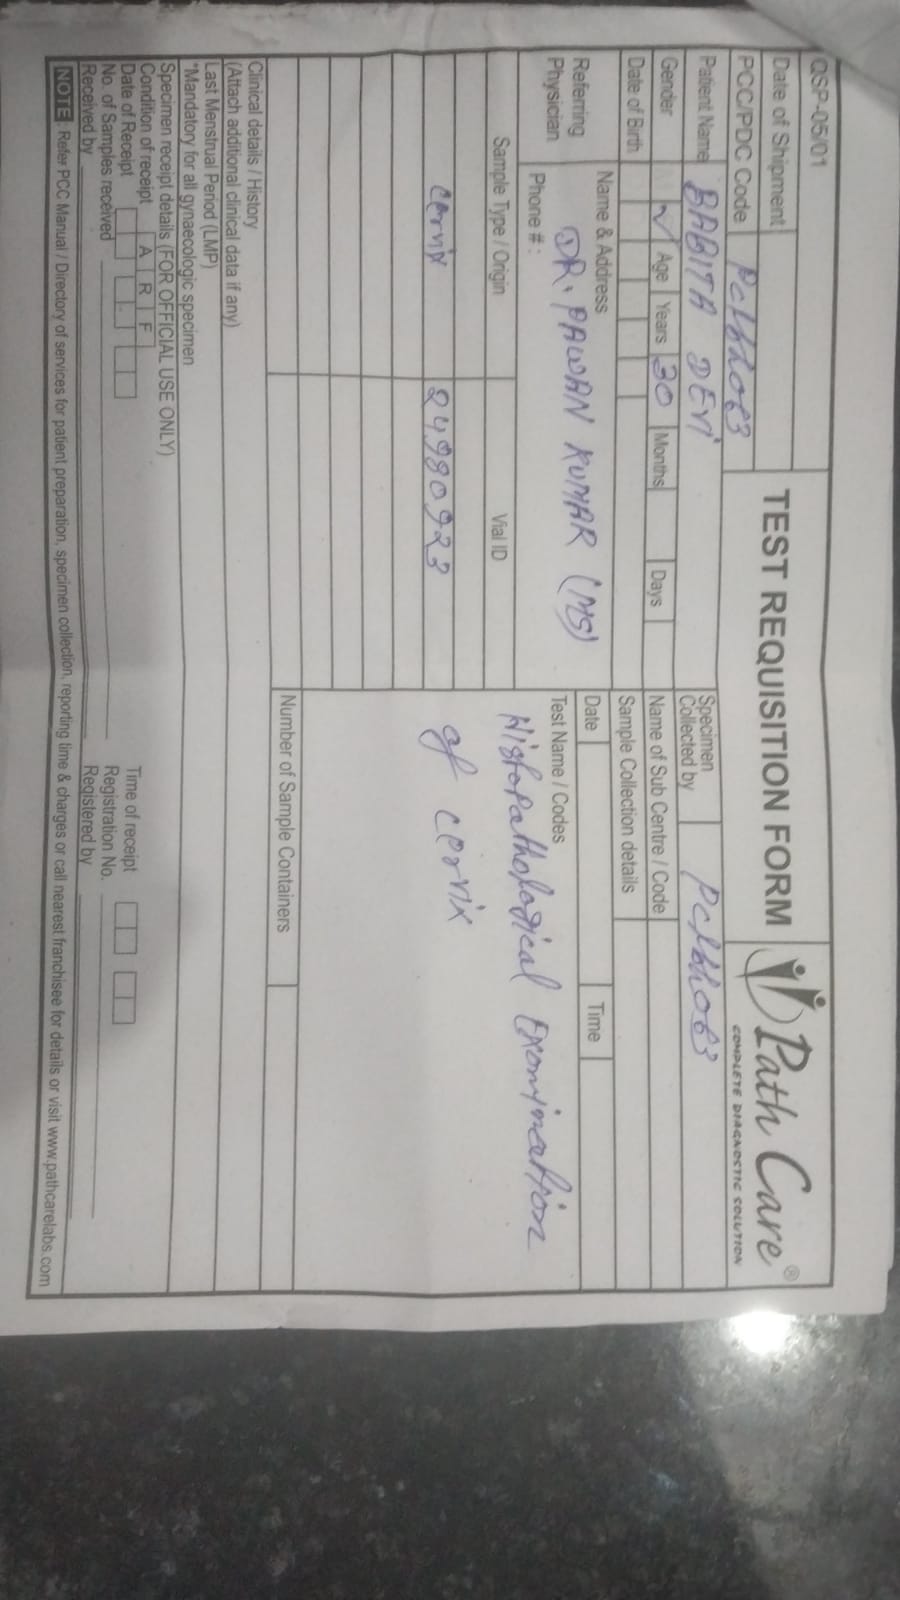 QSP-05/01
Date of Shipment
TEST REQUISITION FORM
Path Care®
COMPLETE DIAGNOSTIC SOLUTION
PCC/PDC Code
Patient Name BABITA DEVI
Specimen Collected by
Gender Age Years 30 Months Days
Name of Sub Centre / Code
Date of Birth
Sample Collection details
Referring Physician
Name & Address
DR. PAWAN KUMAR (MS)
Phone # :
Date Time
Sample Type / Origin Vial ID
Test Name / Codes
Histopathological Examination
of cervix
cervix 24980923
Number of Sample Containers
Clinical details / History
(Attach additional clinical data if any)
Last Menstrual Period (LMP)
*Mandatory for all gynaecologic specimen
Specimen receipt details (FOR OFFICIAL USE ONLY)
Condition of receipt A R F
Date of Receipt Time of receipt
No. of Samples received Registration No.
Received by Registered by
NOTE : Refer PCC Manual / Directory of services for patient preparation, specimen collection, reporting time & charges or call nearest franchisee for details or visit www.pathcarelabs.com